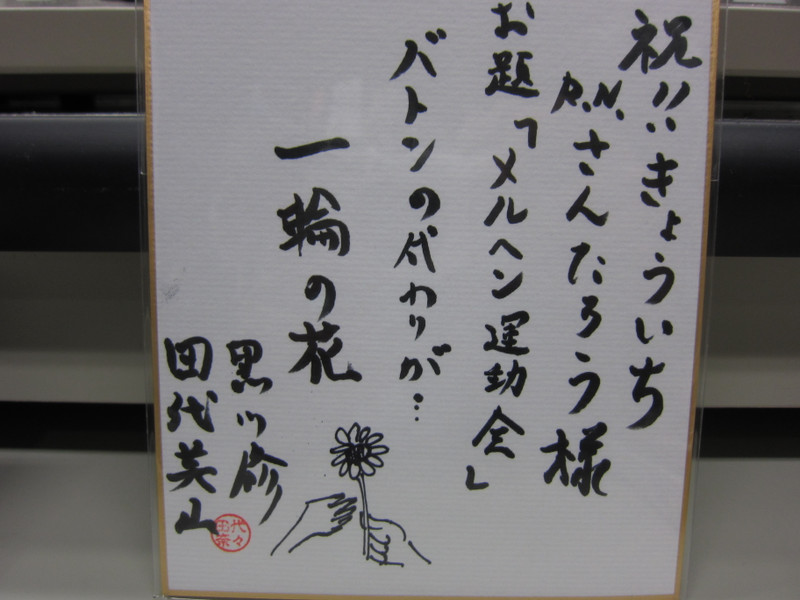 祝!!きょういち
R.N.さんたろう様
お題「メルヘン運動会」
バトンの代わりが…
一輪の花
黒川修
田代英山